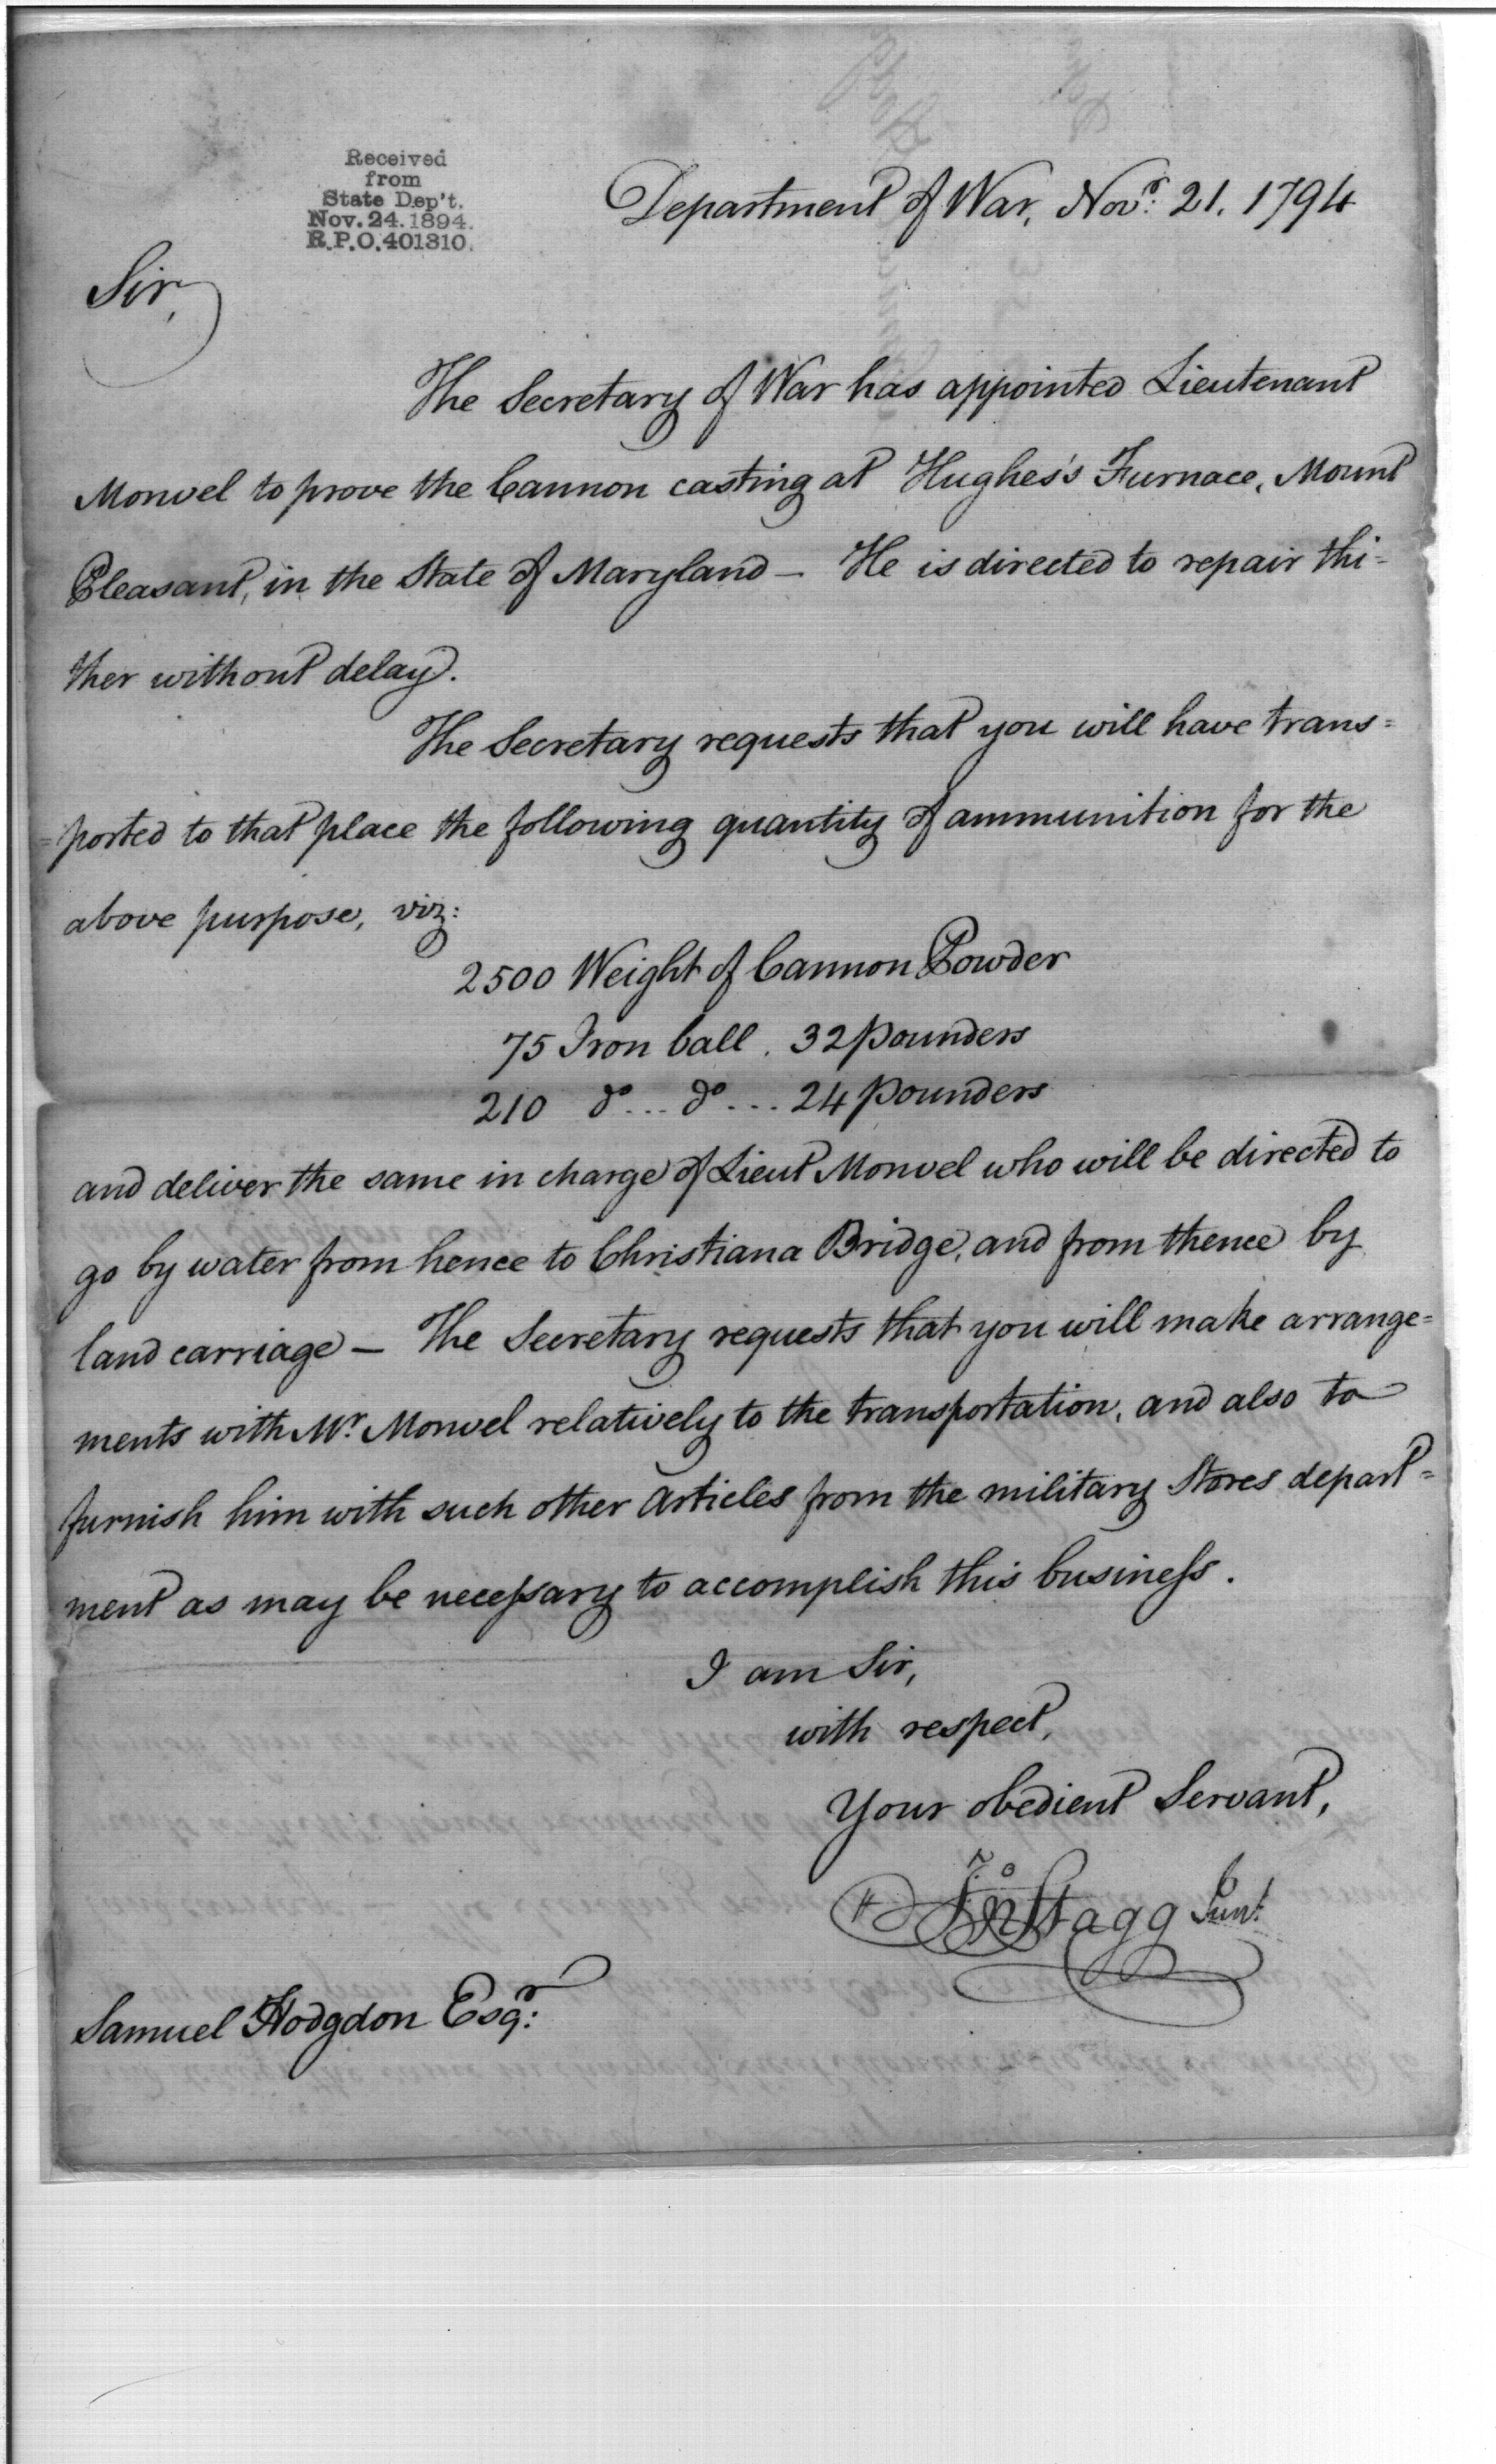 Received
from
State Dep't.
Nov. 24. 1894.
R.P.O. 401310.
Department of War, Novr: 21. 1794
Sir,
The Secretary of War has appointed Lieutenant
Monvel to prove the Cannon casting at Hughes's Furnace, Mount
Pleasant, in the State of Maryland — He is directed to repair thi-
ther without delay.
The Secretary requests that you will have trans=
=ported to that place the following quantity of ammunition for the
above purpose, viz:
2500 Weight of Cannon Powder
75 Iron ball. 32 pounders
210 do... do... 24 pounders
and deliver the same in charge of Lieut Monvel who will be directed to
go by water from hence to Christiana Bridge, and from thence by
land carriage — The Secretary requests that you will make arrange=
ments with Mr. Monvel relatively to the transportation, and also to
furnish him with such other Articles from the military Stores depart=
ment as may be necessary to accomplish this business.
I am Sir,
with respect,
Your obedient Servant,
Jno Stagg Junr.
Samuel Hodgdon Esqr: